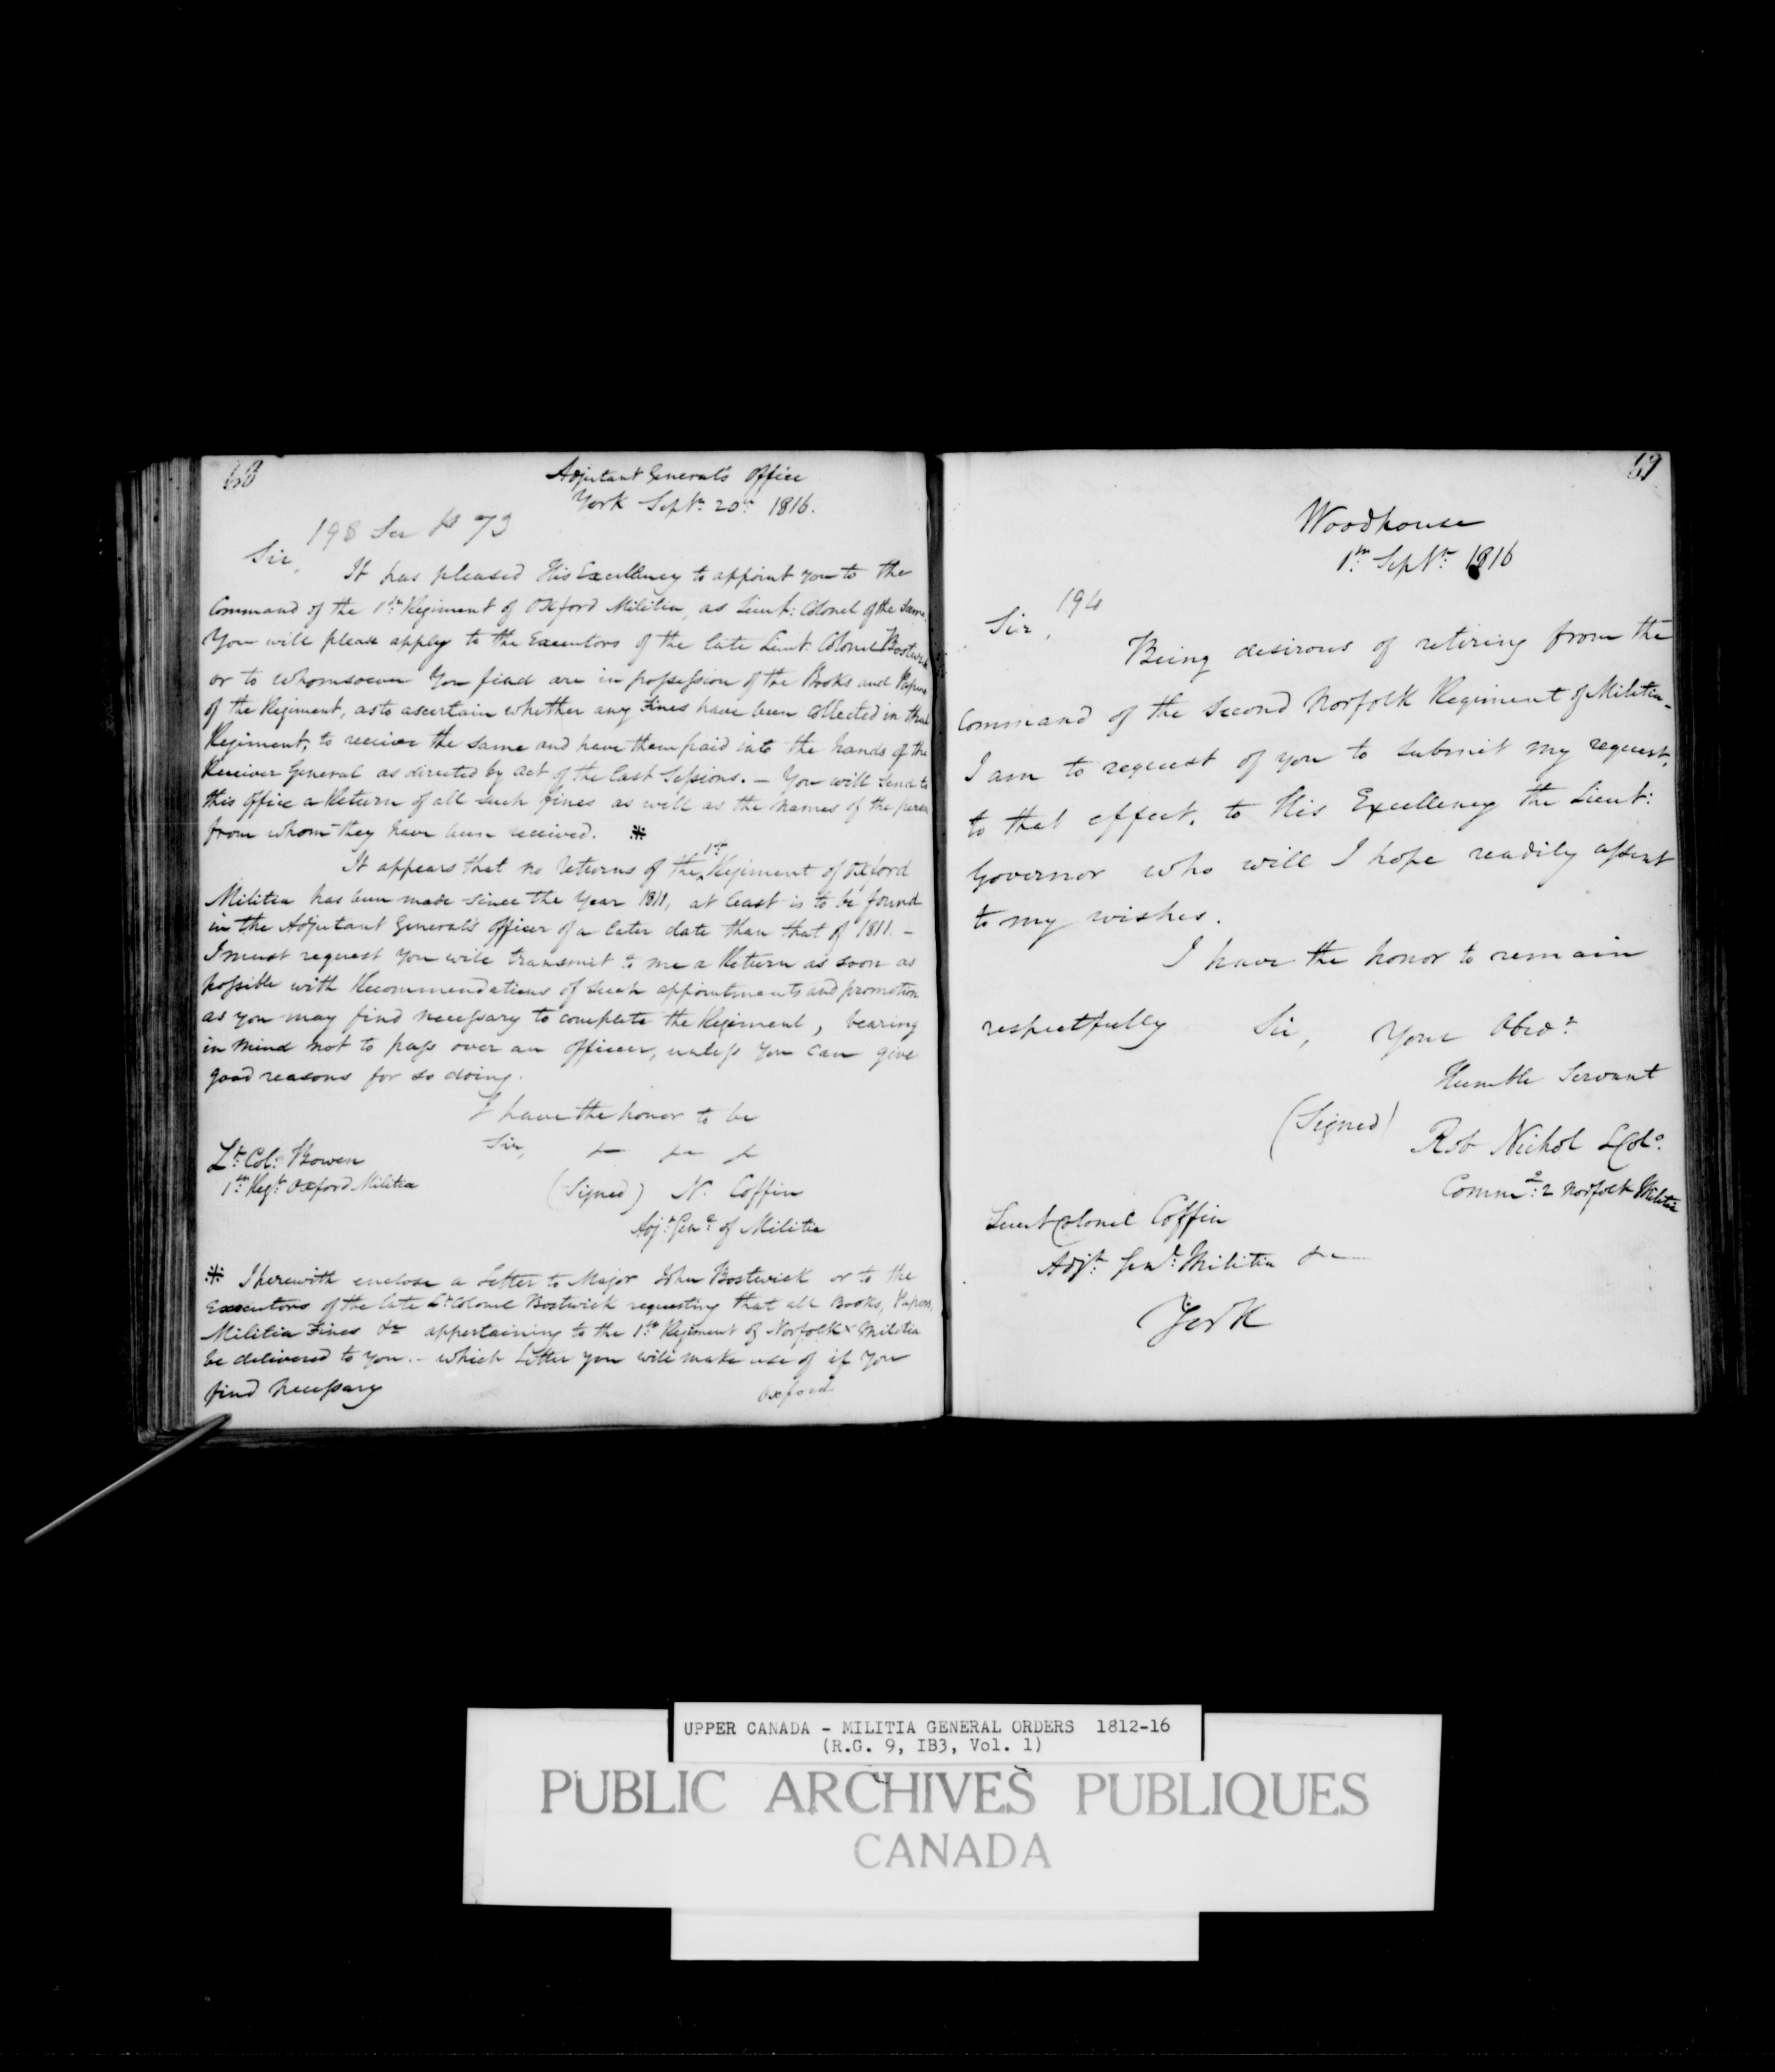 68
Adjutant General's Office
York Septr. 20th 1816.
198 See fo 73
Sir,
It has pleased His Excellency to appoint you to the
Command of the 1st Regiment of Oxford Militia, as Lieut: Colonel of the Same.
You will please apply to the Executors of the late Lieut: Colonel Bostwick
or to whomsoever You find are in possession of the Books and Papers
of the Regiment, as to ascertain whether any Fines have been collected in that
Regiment, to receive the same and have them paid into the hands of the
Receiver General as directed by Act of the last Sessions. — You will Send to
this Office a Return of all such fines as well as the names of the person
from whom they have been received. *
It appears that no returns of the 1st Regiment of Oxford
Militia has been made since the Year 1811, at least is to be found
in the Adjutant General's Officer of a later date than that of 1811. —
I must request You will transmit to me a Return as soon as
possible with Recommendations of such appointments and promotion
as you may find necessary to complete the Regiment, bearing
in mind not to pass over an Officer, unless You can give
good reasons for so doing.
I have the honor to be
Sir,
Lt. Col: Bowen
1st Regt. Oxford Militia
(Signed) N. Coffin
Adjt. Genl. of Militia
* I herewith enclose a Letter to Major John Bostwick or to the
Executors of the late Lt Colonel Bostwick requesting that all Books, Papers,
Militia Fines &c appertaining to the 1st Regiment of Norfolk x Militia
be delivered to You. — which Letter you will make use of if You
find necessary
Oxford
69
Woodhouse
1st Septr. 1816
194
Sir,
Being desirous of retiring from the
Command of the Second Norfolk Regiment of Militia —
I am to request of you to submit my request,
to that effect, to His Excellency the Lieut:
Governor who will I hope readily assent
to my wishes.
I have the honor to remain
respectfully Sir, Your Obedt.
Humble Servant
(Signed)
Rob Nichol LCol.
Commg. 2 Norfolk Militia
Lieut Colonel Coffin
Adjt. Genl. Militia &c
York
UPPER CANADA - MILITIA GENERAL ORDERS 1812-16
(R.G. 9, IB3, Vol. 1)
PUBLIC ARCHIVES PUBLIQUES
CANADA